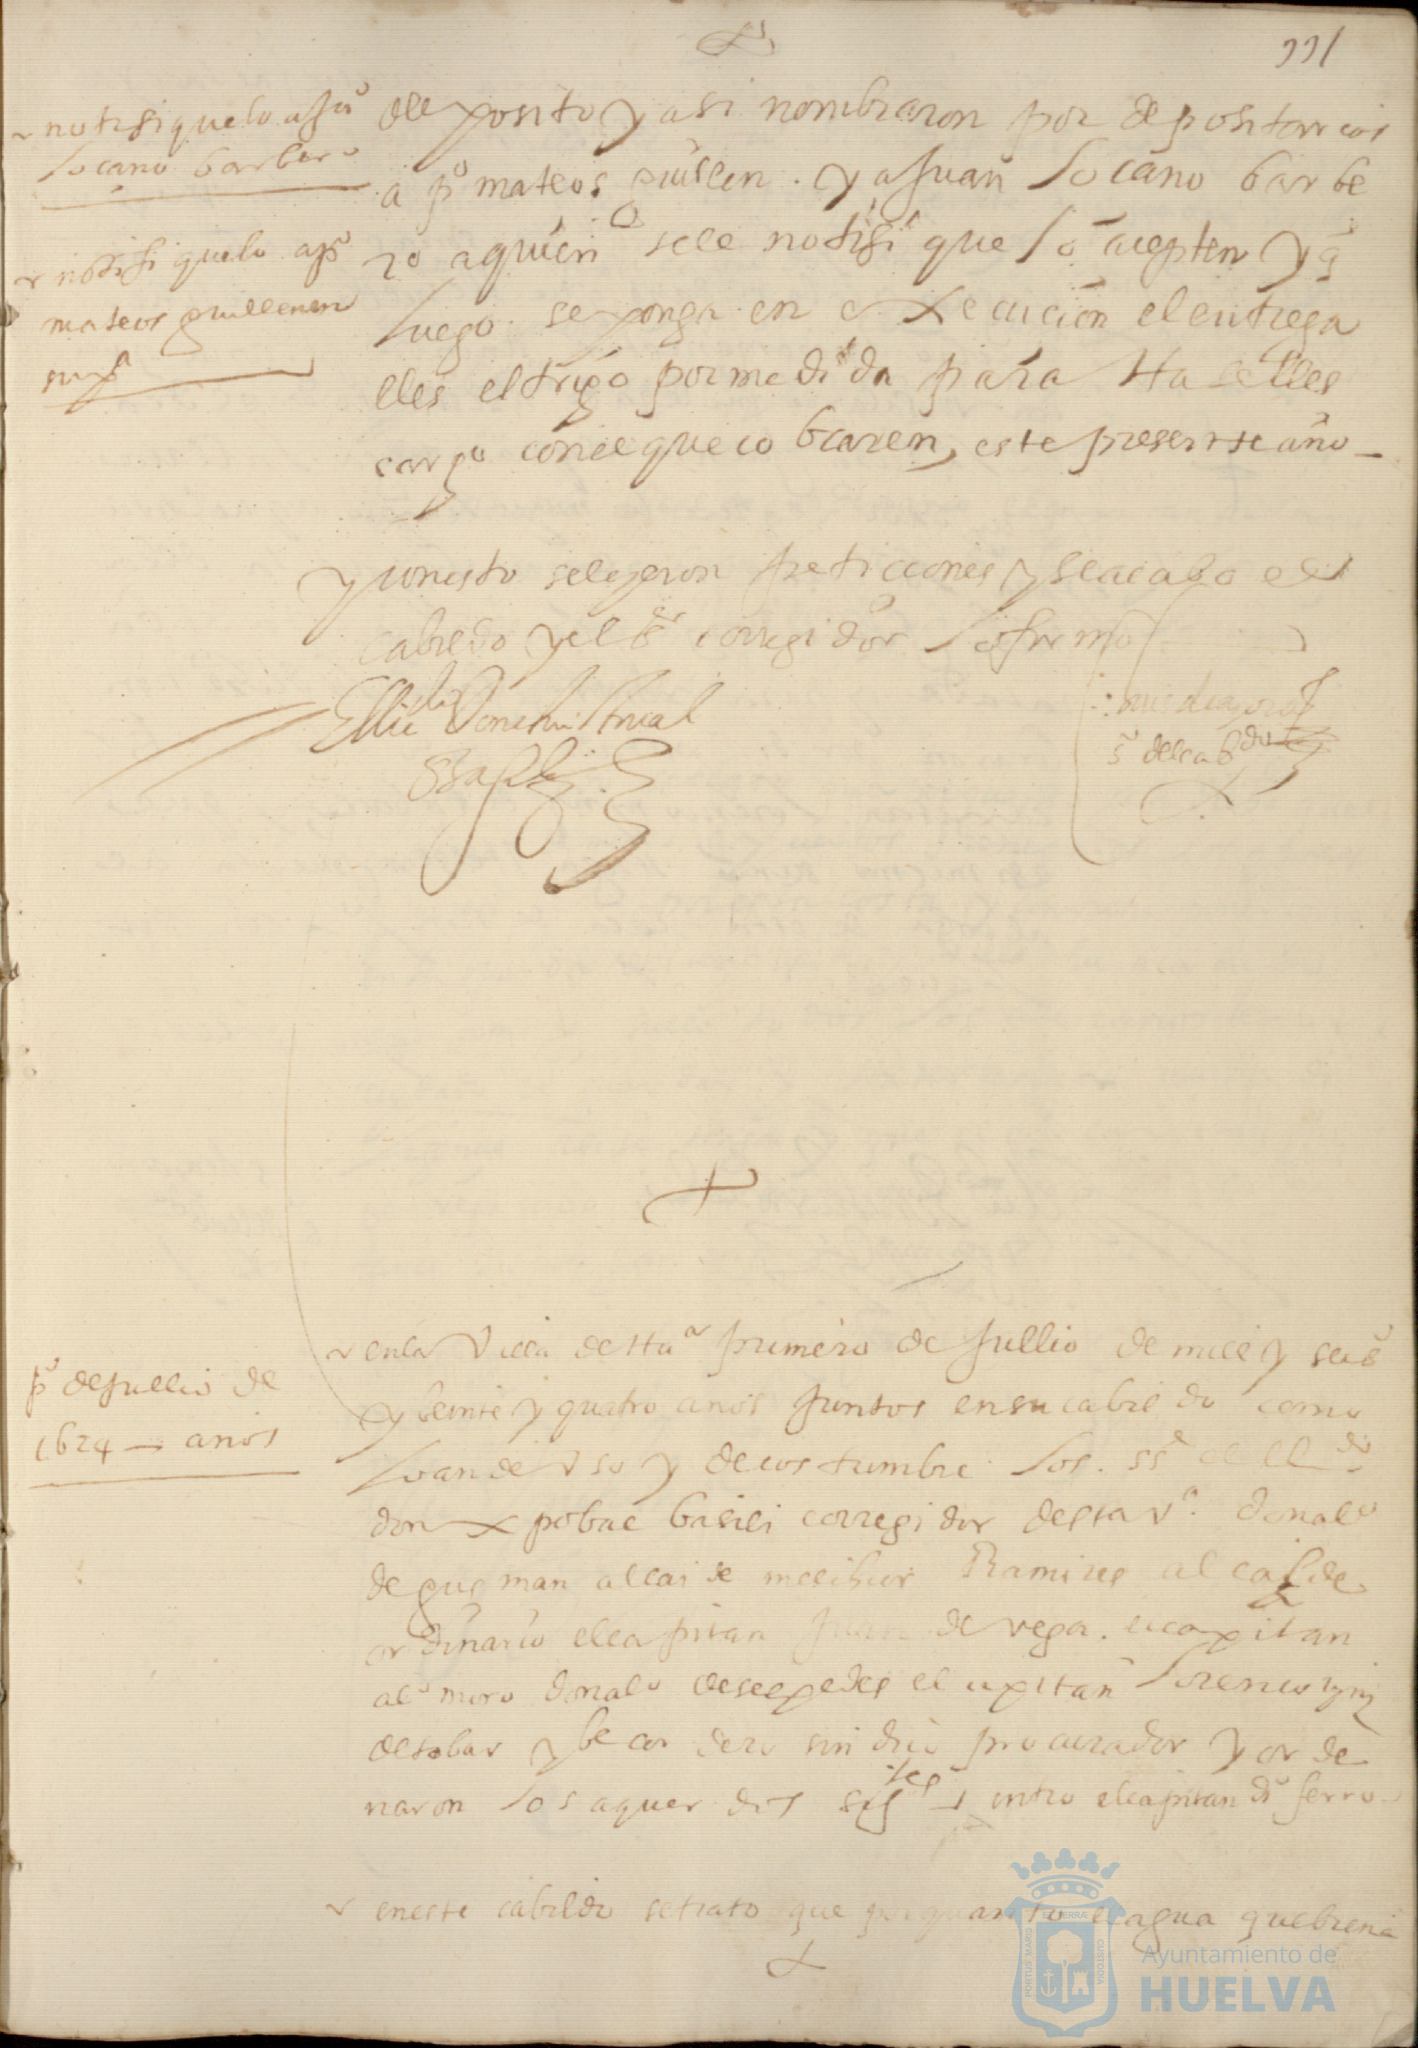 331
notifiquelo a Juº
locano barbero
notifiquelo a pº
mateos guillen en
su pª
deposito y asi nombraron por depositarios
a pº mateos guillen . y a Juan locano barbe
ro a quien se le notifi que lo acepten y q
luego se ponga en execucion el entrega
lles el trigo por medida para Haselles
cargo con el que cobraren, este presente año
y con esto se leyeron peticiones y se acabo el
cabildo y el sr corregidor lo firmo
El licdo Don
sº del cabdo
pº de Jullio de
1624 — años
en la Villa de Huª primero de Jullio de mill y seisº
y beinte y quatro anos Juntos en su cabildo como
lo an de Uso y de costumbre los . sses el lldo
don xpobal basili corregidor desta vª . don alº
de gusman alcaide melchior Ramires alcalde
ordinario el capitan Juan de vega . el capitan
alº moro don alº de sespedes el capitan lorenco
de tobar y becordero sindico procurador y orde
naron los aquerdos sigtes entro el capitan dº ferro
en este cabildo se trato que por quanto el agua
Ayuntamiento de
HUELVA
PORTUS MARIS
CUSTODIA